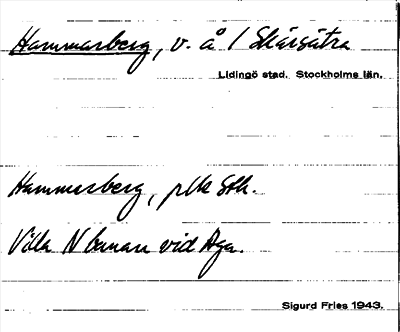 Hammarberg, v. å / Skärsätra
Lidingö stad. Stockholms län.
Hammarberg, plk Sth.
Villa N banan vid Aga.
Sigurd Fries 1943.